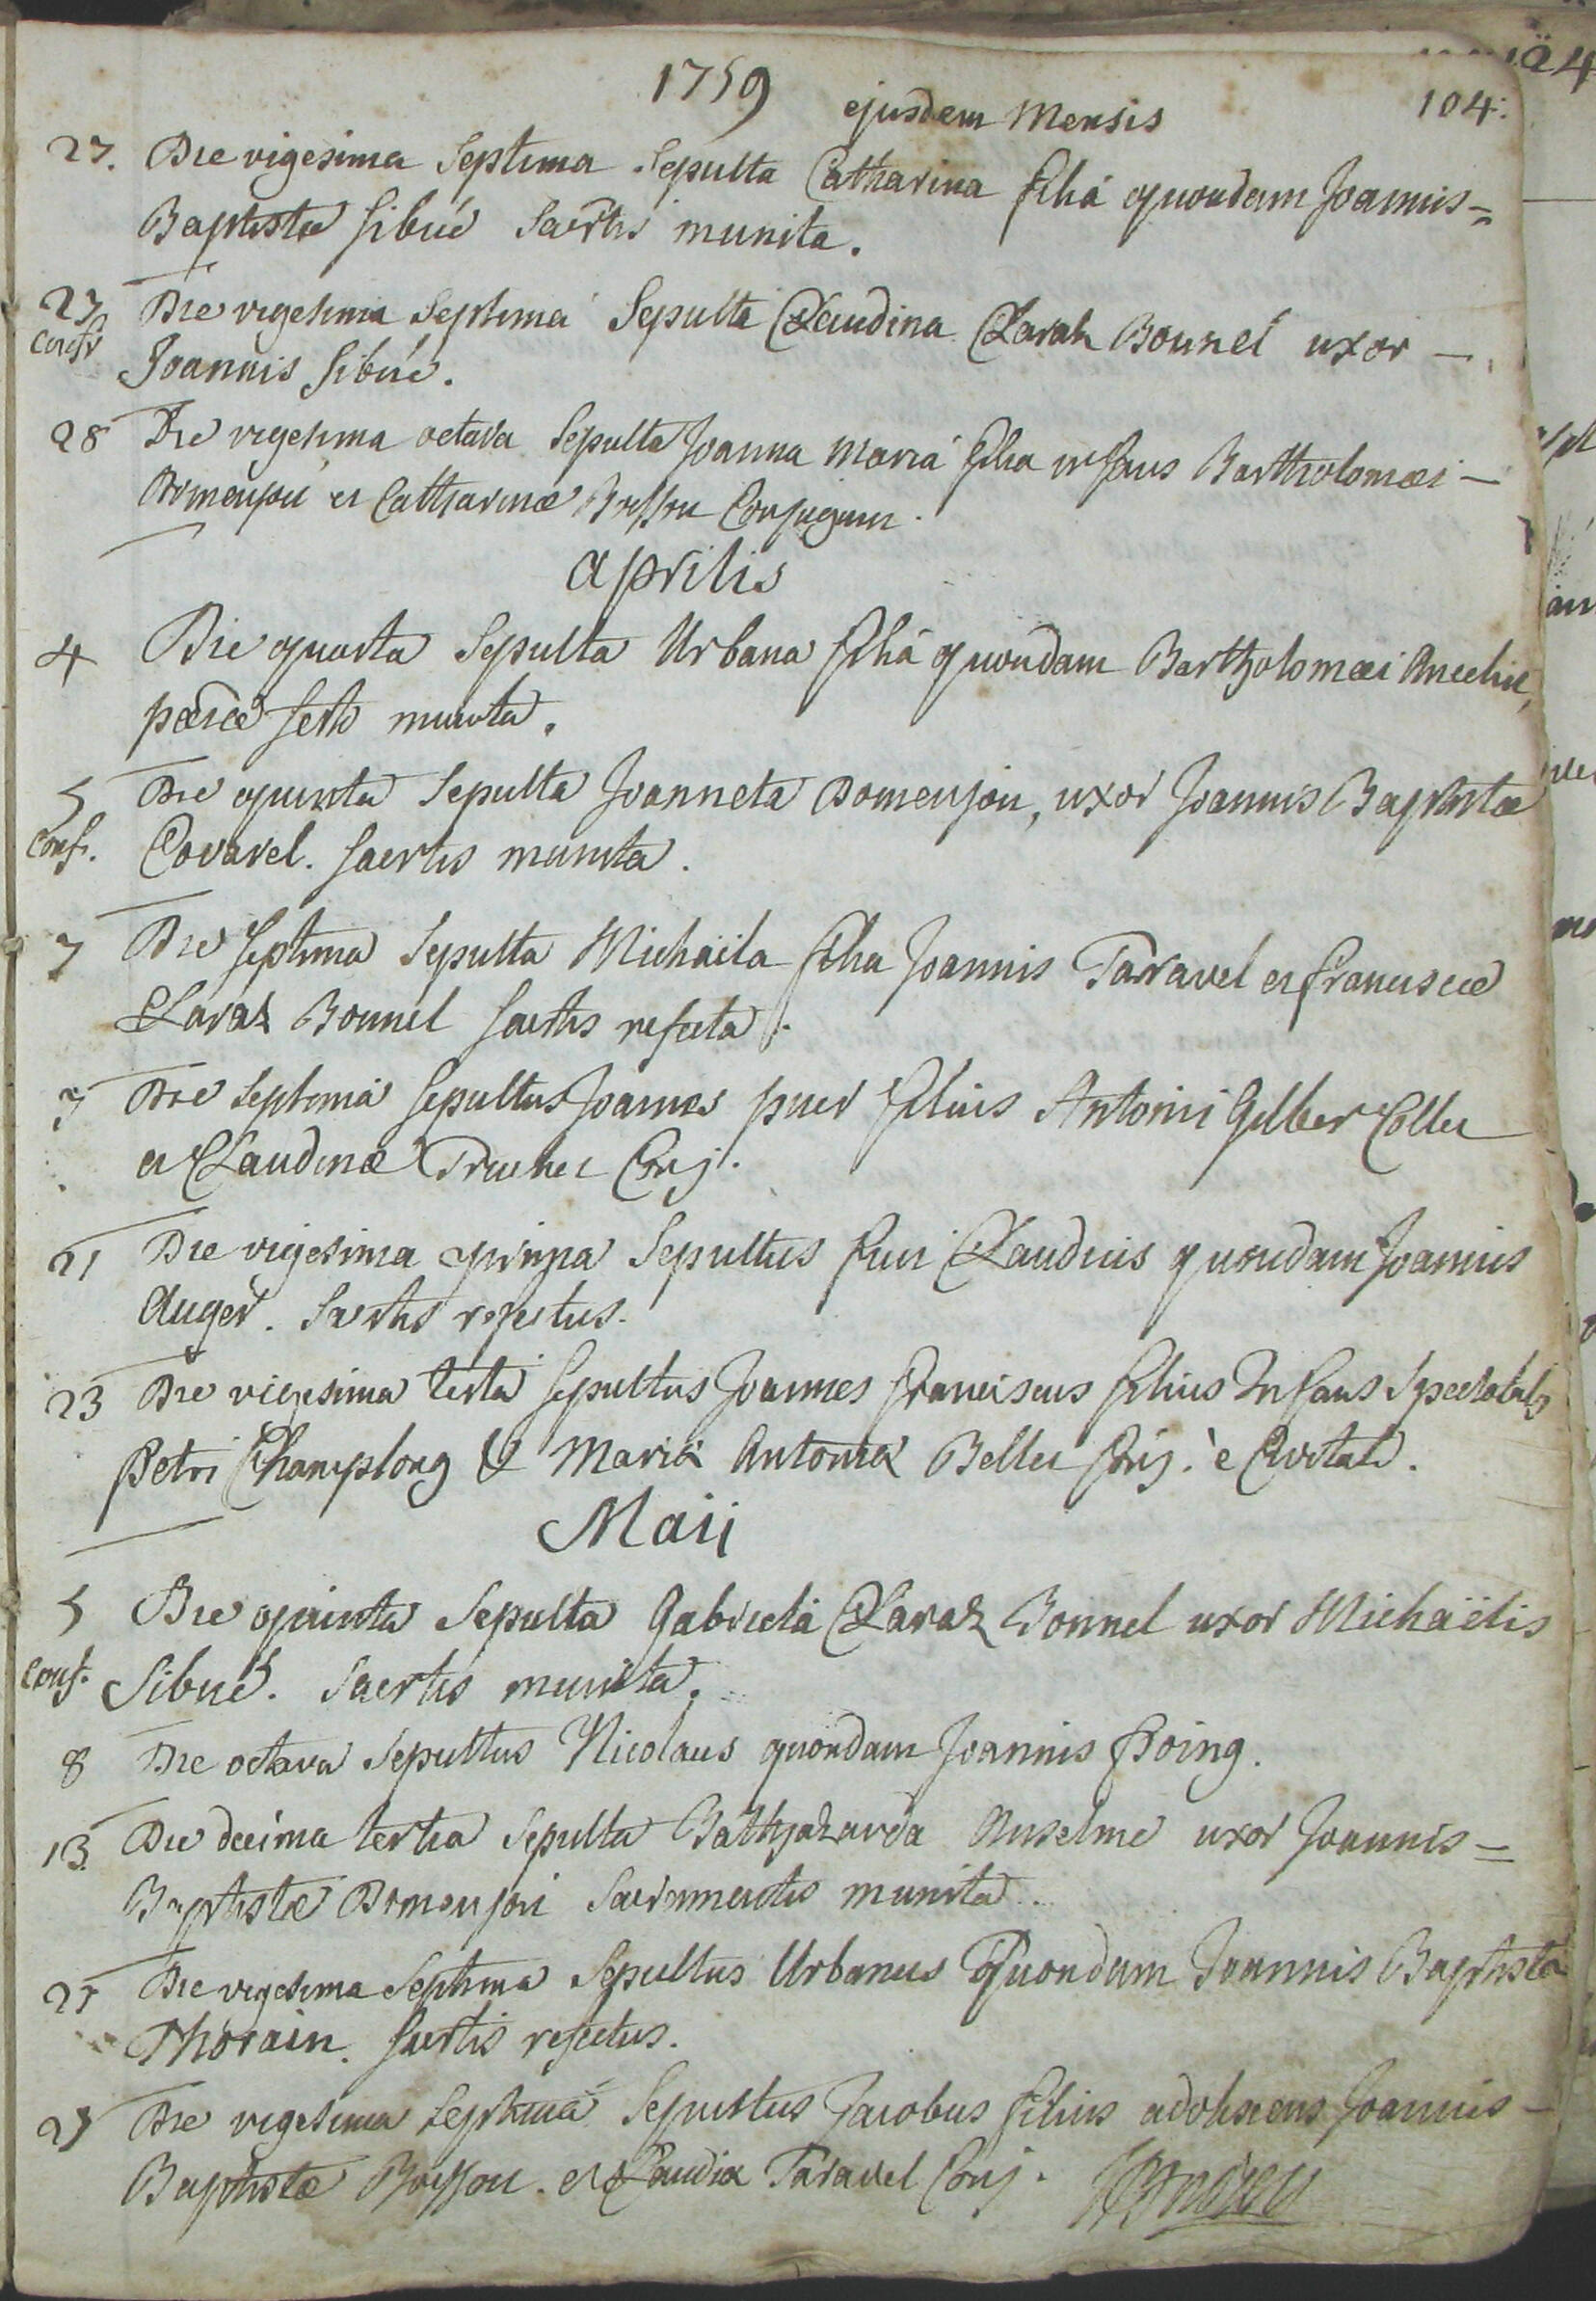 1759
ejusdem Mensis 104.
27. Die vigesima Septima Sepulta Catharina filia quondam Joannis=
Baptistæ Sibué Sacrtis munita.
27 Die vigesima Septima Sepulta Claudina Claraz Bonnel uxor –
Confr Joannis Sibué.
28 Die vigesima octava Sepulta Joanna Maria filia infans Bartholomæi –
Domenjon et Catharinæ Boisson Conjugum.
Aprilis
4 Die quarta Sepulta Urbana filia quondam Bartholomæi
munita.
5 Die quinta Sepulta Joanneta Domenjon, uxor Joannis Baptistæ
Conf. Covarel. Sacrtis munita.
7 Die Septima Sepulta Michaëla filia Joannis Tarravel et Franciscæ
Claraz Bonnel Sacrtis refecta.
7 Die Septima Sepultus Joannes puer filius Antonii Gilber Collet
et Claudinæ Truchet Conj.
21 Die vigesima prima Sepultus fuit Claudius quondam Joannis
Auger. Sacrtis refectus.
23 Die vigesima tertia Sepultus Joannes Franciscus filius Infans Spectabilis
Petri Champlong & Mariæ Antoniæ Bellet Conj. è Civitate.
Maii
5 Die quinta Sepulta Gabriela Claraz Bonnel uxor Michaëlis
Conf. Sibué. Sacrtis munita.
8 Die octava Sepultus Nicolaus quondam Joannis Foing.
13. Die decima tertia Sepulta Balthazarda Anselme uxor Joannis=
Baptistæ Domenjon Sacramentis munita.
27 Die vigesima Septima Sepultus Urbanus Quondam Joannis Baptista
Thorain. Sacrtis refectus.
27 Die vigesima Septima Sepultus Jacobus filius adolescens Joannis –
Baptistæ Boisson. et Claudiæ Taravel Conj.